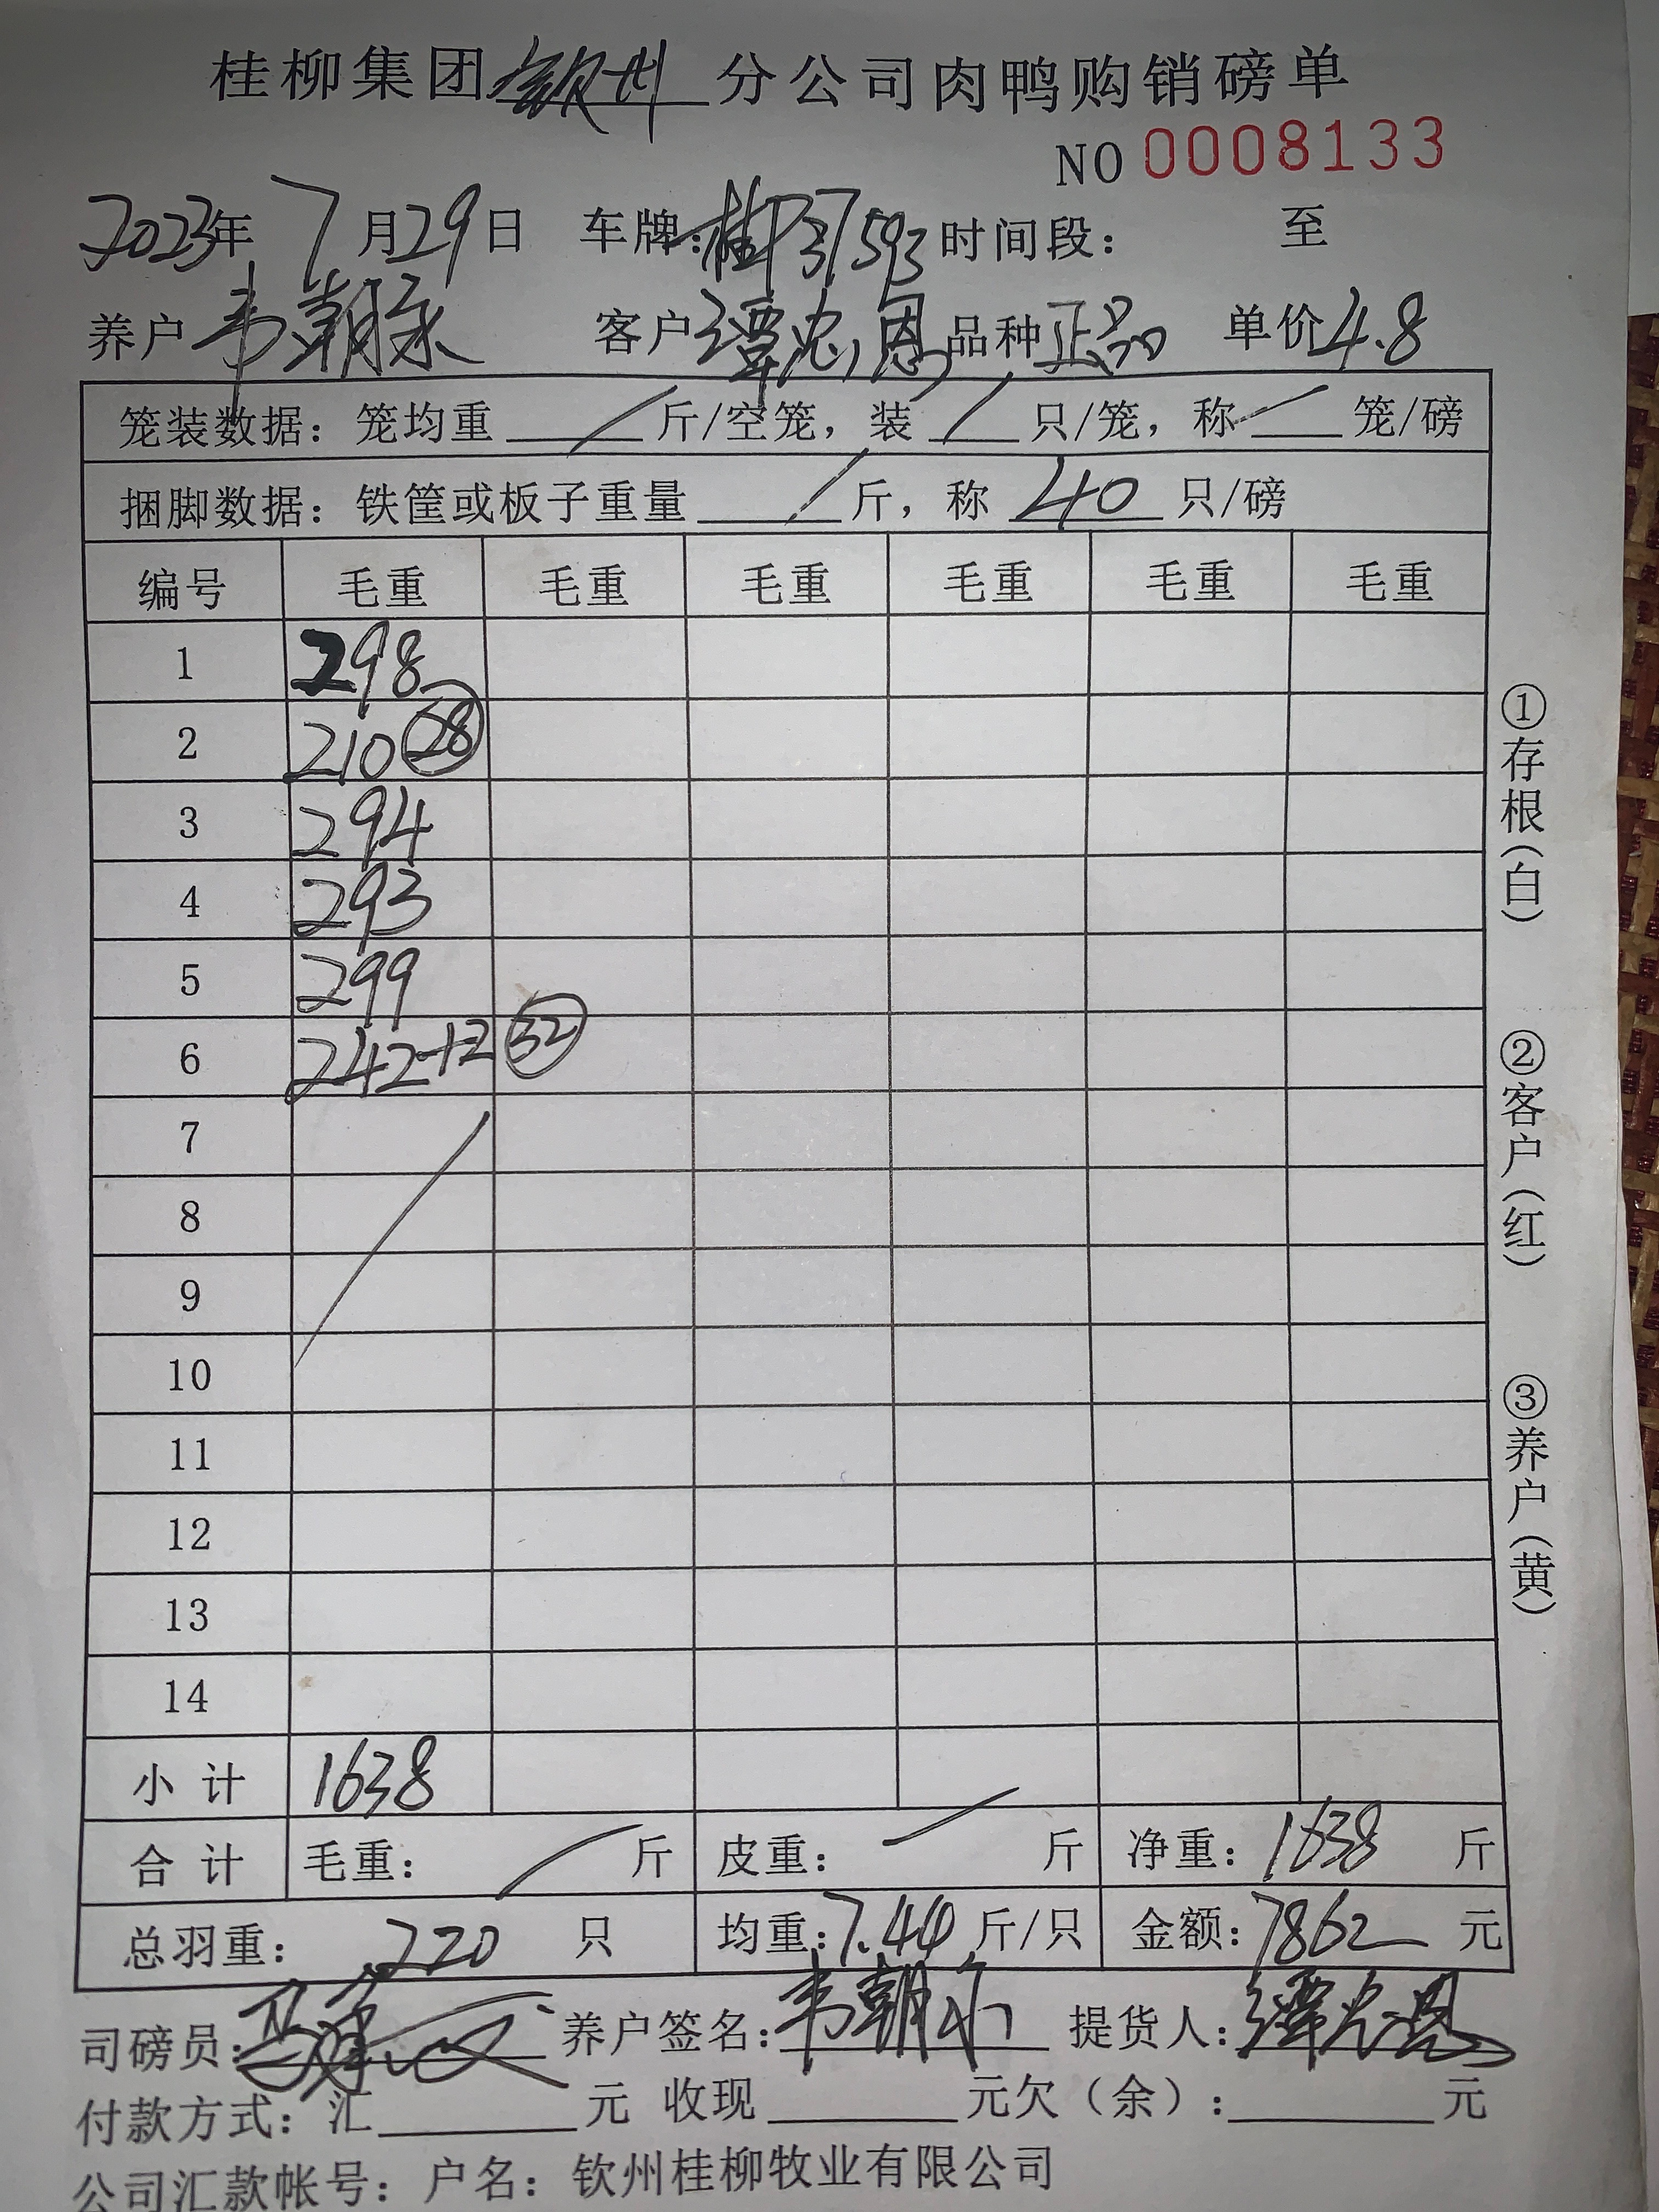 桂柳集团钦州分公司肉鸭购销磅单
NO 0008133
2023年7月29日 车牌:桂P37593 时间段: 至
养户 韦朝 客户 谭忠恩 品种 正品 单价 4.8
笼装数据: 笼均重 / 斤/空笼, 装 / 只/笼, 称 / 笼/磅
捆脚数据: 铁筐或板子重量 / 斤, 称 40 只/磅
编号 毛重 毛重 毛重 毛重 毛重 毛重
1 298
2 210 28
3 294
4 293
5 299
6 242+2 32
7
8
9
10
11
12
13
14
小计 1638
合计 毛重: / 斤 皮重: / 斤 净重: 1638 斤
总羽重: 220 只 均重: 7.44 斤/只 金额: 7862 元
司磅员: 养户签名: 韦朝 提货人: 谭忠恩
付款方式: 汇 元 收现 元欠(余): 元
公司汇款帐号: 户名: 钦州桂柳牧业有限公司
①存根(白)
②客户(红)
③养户(黄)